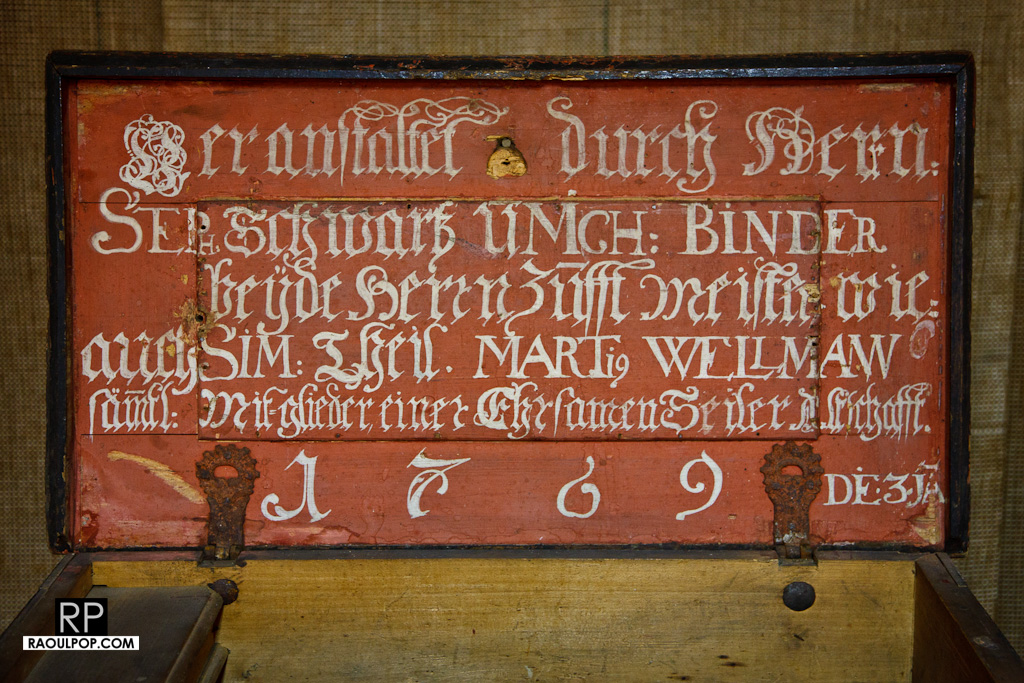 Veranstaltet durch Hern:
STEPH. Schwartz UMCH: BINDER
beÿde Herrn Zūfft Meistr: wie
auch SIM: Theil. MARTi9 WELLMAN̄
säm̄tl: Mitglieder einer Ehrsamen Seiler
1769 DE: 3 JA̅
RP
RAOULPOP.COM